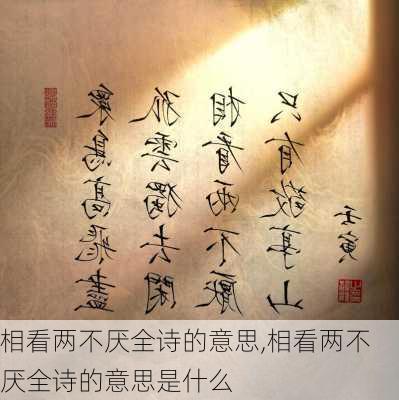 眾鳥高飛盡
孤雲獨去閑
相看兩不厭
只有敬亭山
壬寅
相看两不厌全诗的意思,相看两不
厌全诗的意思是什么